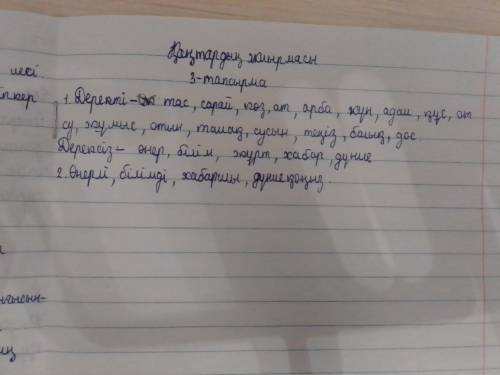 Қаңтардың жиырмасы
3-тапсырма
1. Деректі - тас, сарай, көз, ат, арба, жүн, адам, құс, от
су, жұмыс, отын, тамақ, сусын, теңіз, балық, дос
Дерексіз - өнер, білім, жұрт, хабар, дүние
2. Өнерлі, білімді, хабаршы, дүниеқоңыз
иесі
іпкер